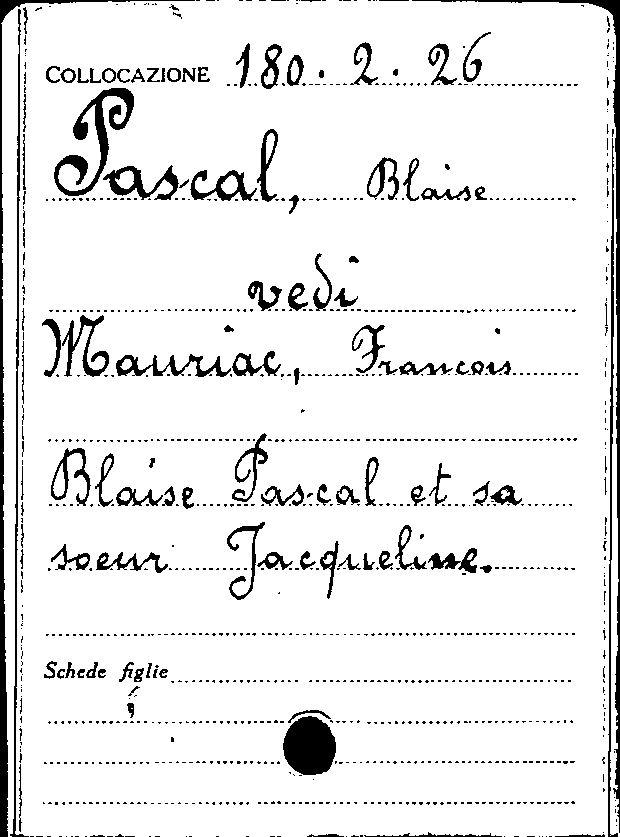 COLLOCAZIONE 180. 2. 26
Pascal, Blaise
vedi
Mauriac, Francois
Blaise Pascal et sa
soeur Jacqueline.
Schede figlie